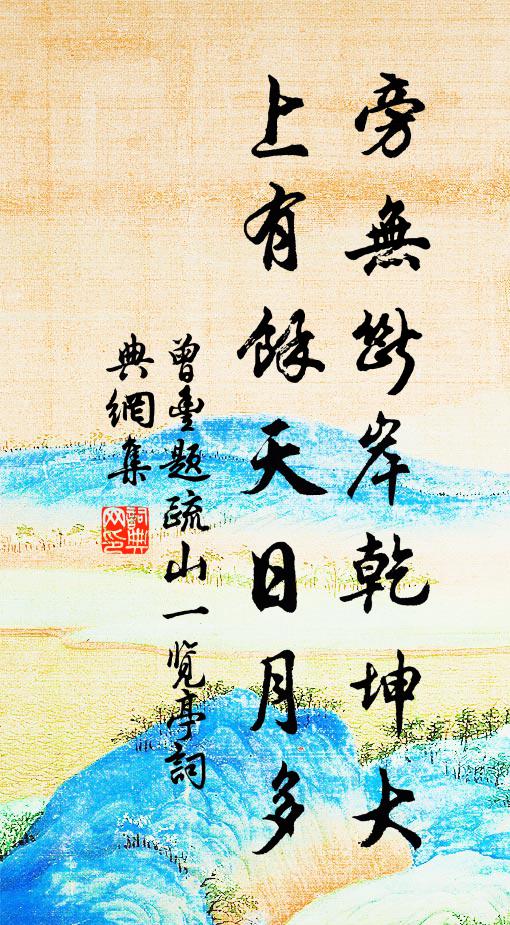 旁無斷岸乾坤大
上有餘天日月多
曾豐題疏山一覽亭詞
典網集
詞典
网印